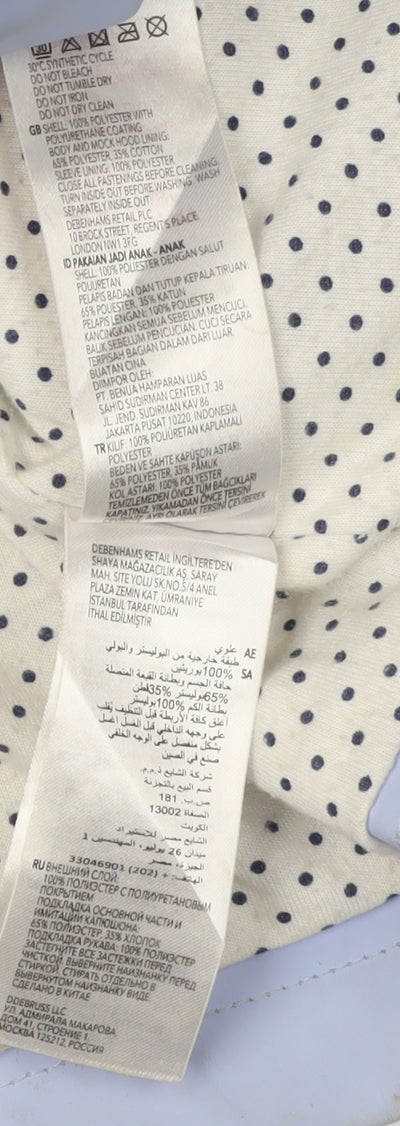 30
30°C SYNTHETIC CYCLE
DO NOT BLEACH
DO NOT TUMBLE DRY
DO NOT IRON
DO NOT DRY CLEAN
GB SHELL: 100% POLYESTER WITH
POLYURETHANE COATING
BODY AND MOCK HOOD LINING:
65% POLYESTER, 35% COTTON
SLEEVE LINING: 100% POLYESTER
CLOSE ALL FASTENINGS BEFORE CLEANING.
TURN INSIDE OUT BEFORE WASHING. WASH
SEPARATELY INSIDE OUT.
DEBENHAMS RETAIL PLC
10 BROCK STREET, REGENT'S PLACE
LONDON NW1 3FG
ID PAKAIAN JADI ANAK - ANAK
SHELL: 100% POLIESTER DENGAN SALUT
POLIURETAN
PELAPIS BADAN DAN TUTUP KEPALA TIRUAN:
65% POLIESTER, 35% KATUN
PELAPIS LENGAN: 100% POLIESTER
KANCINGKAN SEMUA SEBELUM MENCUCI.
BALIK SEBELUM PENCUCIAN. CUCI SECARA
TERPISAH BAGIAN DALAM DARI LUAR.
BUATAN CINA
DIIMPOR OLEH:
PT. BENUA HAMPARAN LUAS
SAHID SUDIRMAN CENTER LT. 38
JL. JEND. SUDIRMAN KAV 86
JAKARTA PUSAT 10220, INDONESIA
TR KILIF: 100% POLİÜRETAN KAPLAMALI
POLYESTER
BEDEN VE SAHTE KAPÜŞON ASTARI:
65% POLYESTER, 35% PAMUK
KOL ASTARI: 100% POLYESTER
TEMİZLEMEDEN ÖNCE TÜM BAĞCIKLARI
KAPATINIZ. YIKAMADAN ÖNCE TERSİNİ
ÇEVİRİNİZ. AYRI OLARAK TERSİNİ ÇEVİREREK
DEBENHAMS RETAIL İNGİLTERE'DEN
SHAYA MAĞAZACILIK AŞ. SARAY
MAH. SITE YOLU SK.NO.5/4 ANEL
PLAZA ZEMIN KAT, ÜMRANIYE
İSTANBUL TARAFINDAN
İTHAL EDİLMİŞTİR
AE علوي
SA طبقة خارجية من البوليستر والبولي
يوريثين 100%
حافة الجسم وبطانة القبعة المتصلة
65%بوليستر 35%قطن
بطانة الكم 100%بوليستر
أغلق كافة الأربطة قبل التنظيف يُقلب
على وجهه الداخلي قبل الغسل اغسل
بشكل منفصل على الوجه الخلفي
صنع في الصين
شركة الشايع ذ.م.م.
قسم البيع بالتجزئة
ص.ب. 181
الصفاة 13002
الكويت
الشايع مصر للاستيراد
ميدان 26 يوليو، المهندسين 1
الجيزة، مصر
+ (202) 33046901
RU ВНЕШНИЙ СЛОЙ:
100% ПОЛИЭСТЕР С ПОЛИУРЕТАНОВЫМ
ПОКРЫТИЕМ
ПОДКЛАДКА ОСНОВНОЙ ЧАСТИ И
ИМИТАЦИИ КАПЮШОНА:
65% ПОЛИЭСТЕР, 35% ХЛОПОК
ПОДКЛАДКА РУКАВА: 100% ПОЛИЭСТЕР
ЗАСТЕГНИТЕ ВСЕ ЗАСТЕЖКИ ПЕРЕД
ЧИСТКОЙ. ВЫВЕРНИТЕ НАИЗНАНКУ ПЕРЕД
СТИРКОЙ. СТИРАТЬ ОТДЕЛЬНО В
ВЫВЕРНУТОМ НАИЗНАНКУ ВИДЕ
СДЕЛАНО В КИТАЕ
DDEBRUSS LLC
УЛ. АДМИРАЛА МАКАРОВА,
ДОМ 41, СТРОЕНИЕ 1
МОСКВА 125212, РОССИЯ